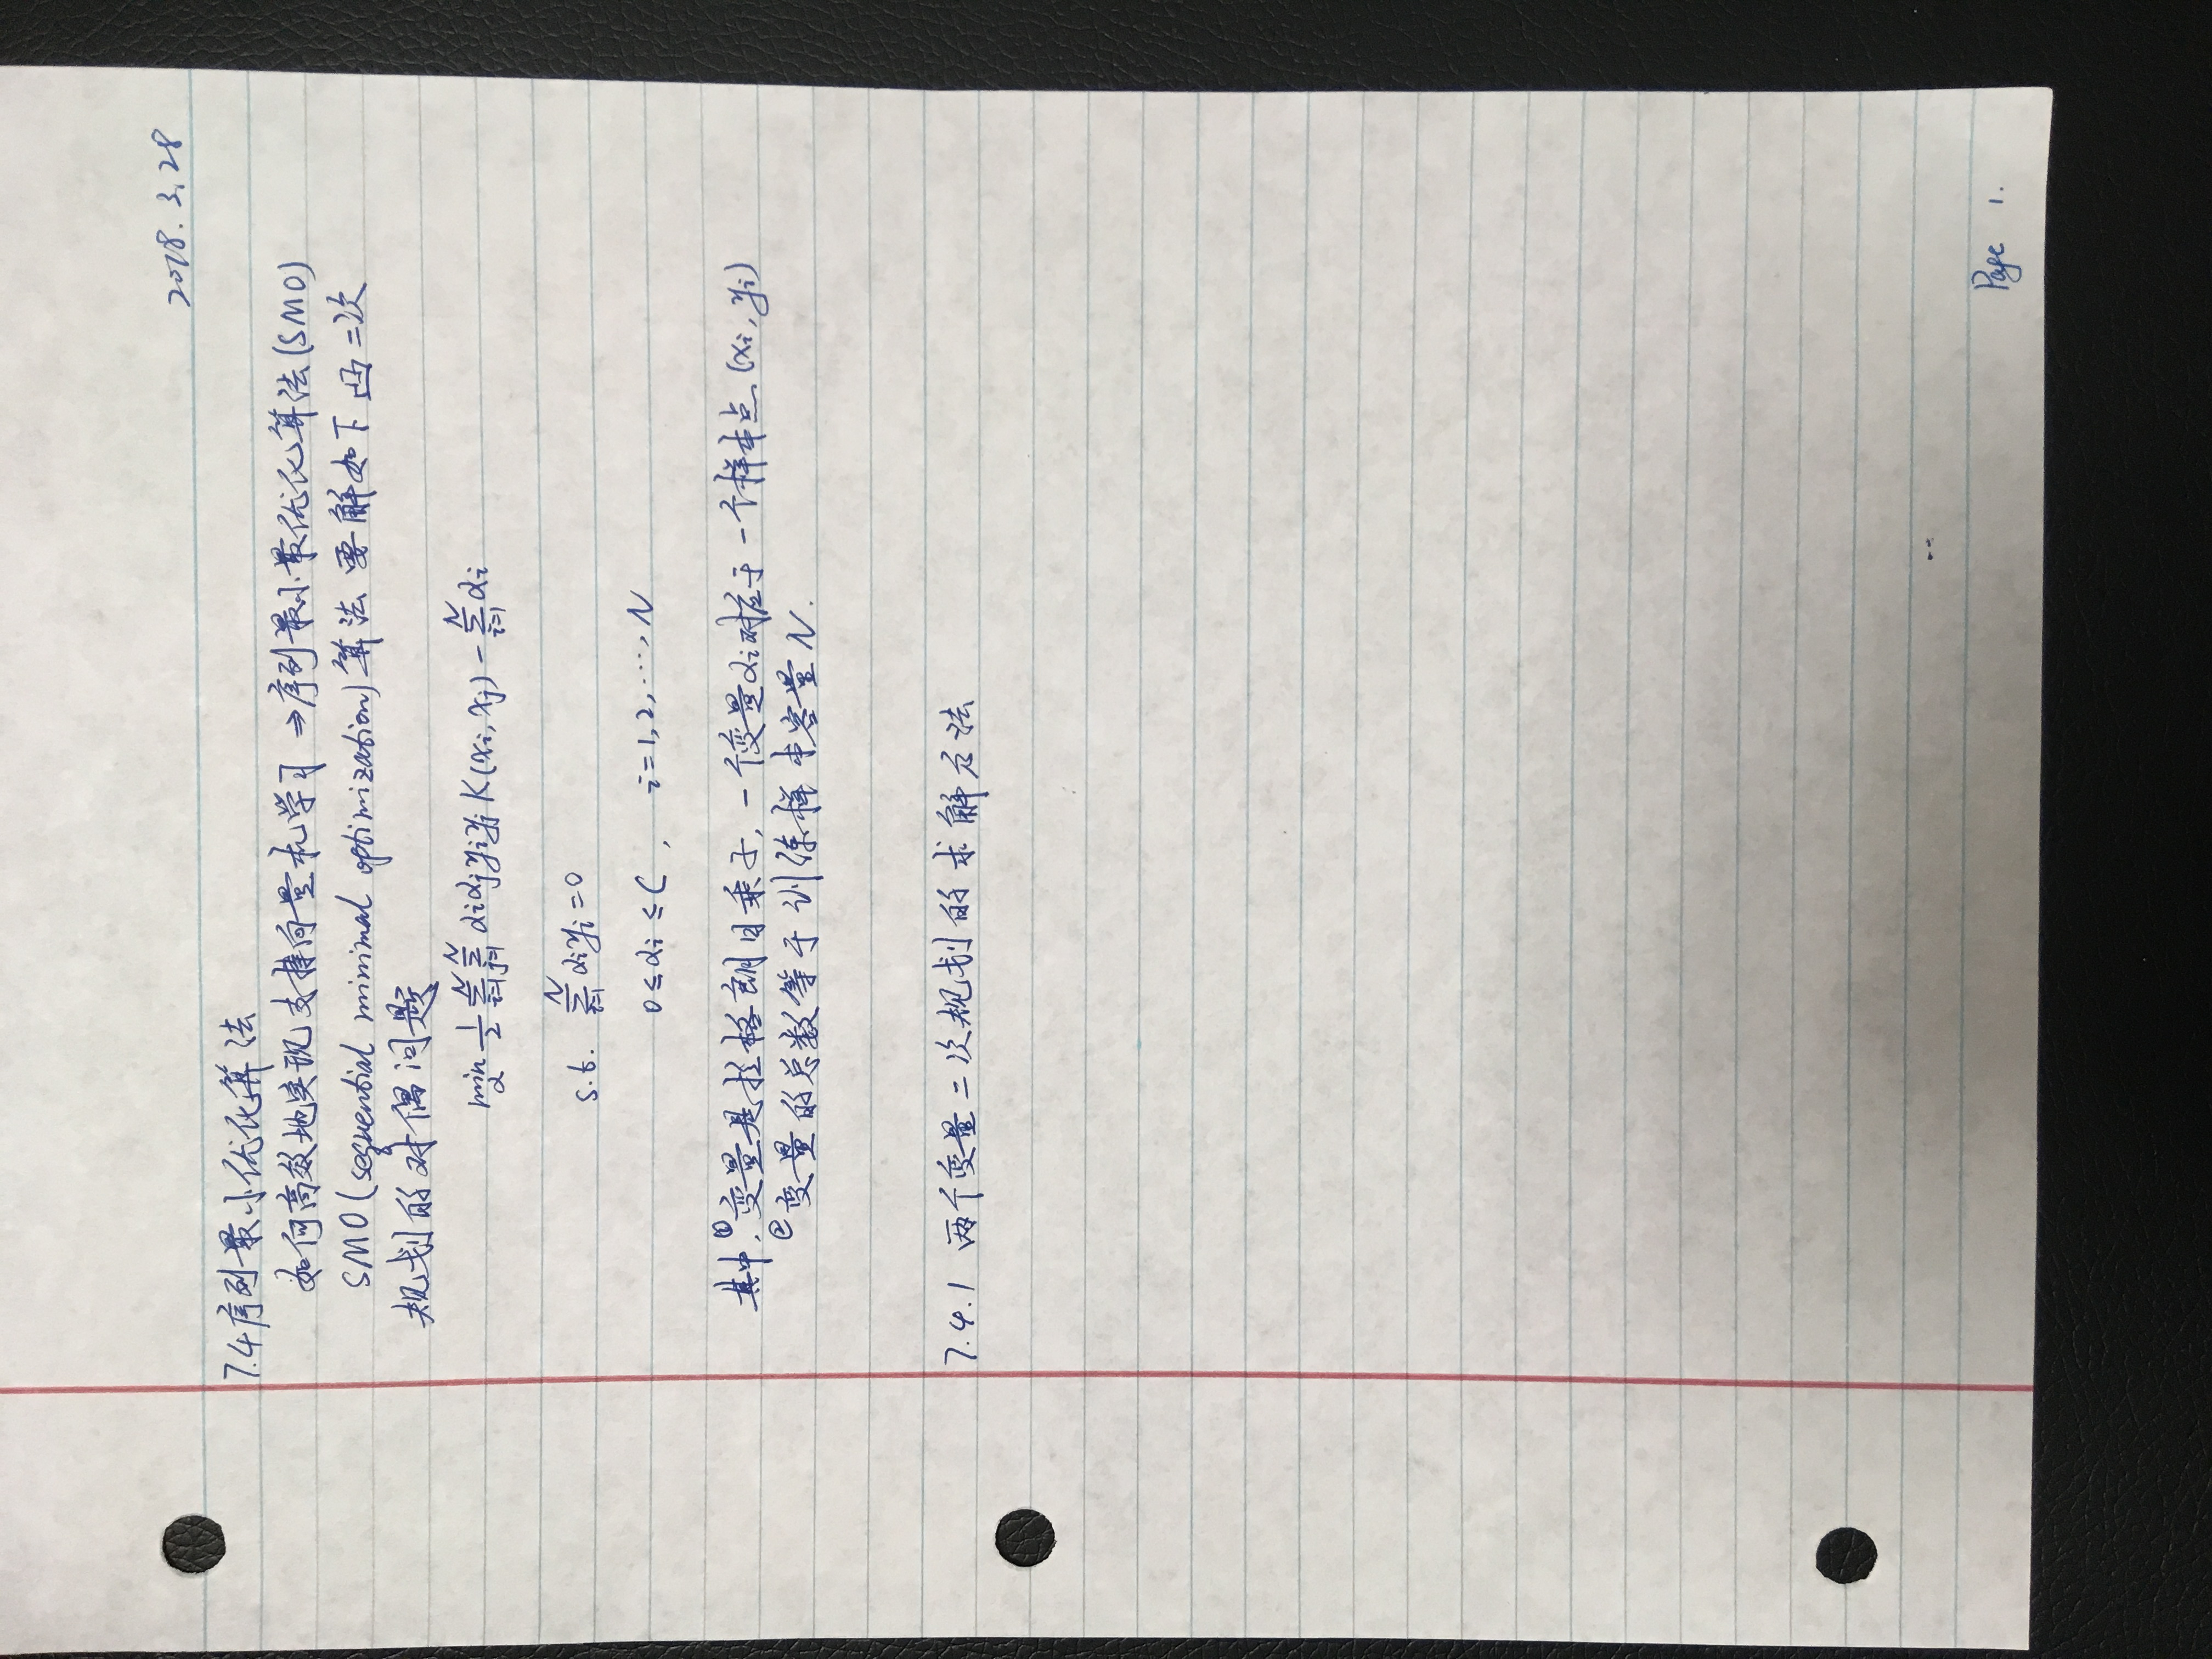 2018.3.28
7.4 序列最小优化算法
如何高效地实现支持向量机学习 → 序列最小最优化算法 (SMO)
SMO (sequential minimal optimization) 算法 要解如下凸二次
规划的对偶问题
min_α 1/2 Σ_{i=1}^{N} Σ_{j=1}^{N} αi αj yi yj K(xi, xj) - Σ_{i=1}^{N} αi
s.t. Σ_{i=1}^{N} αi yi = 0
0 ≤ αi ≤ C, i=1,2,....,N
其中, ①变量是拉格朗日乘子, 一个变量αi对应于一个样本点 (xi, yi)
②变量的总数等于训练样本容量N.
7.4.1 两个变量二次规划的求解方法
Page 1.